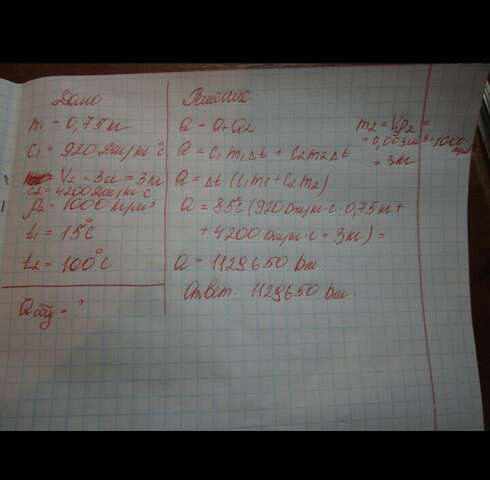 Дано
m₁ = 0,75 кг
c₁ = 920 Дж/кг °C
V₂ = 3л = 3кг
c₂ = 4200 Дж/кг·°C
ρ₂ = 1000 кг/м³
t₁ = 15°C
t₂ = 100°C
Qобщ = ?
Решение
Q = Q₁+Q₂
Q = c₁m₁Δt + c₂m₂Δt
Q = Δt (c₁m₁ + c₂m₂)
Q = 85°C (920 Дж/кг·C · 0,75кг +
+ 4200 Дж/кг·C · 3кг) =
Q = 1129650 Дж.
Ответ: 1129650 Дж.
m₂ = V₂ρ₂ =
= 0,003м³·1000
= 3кг